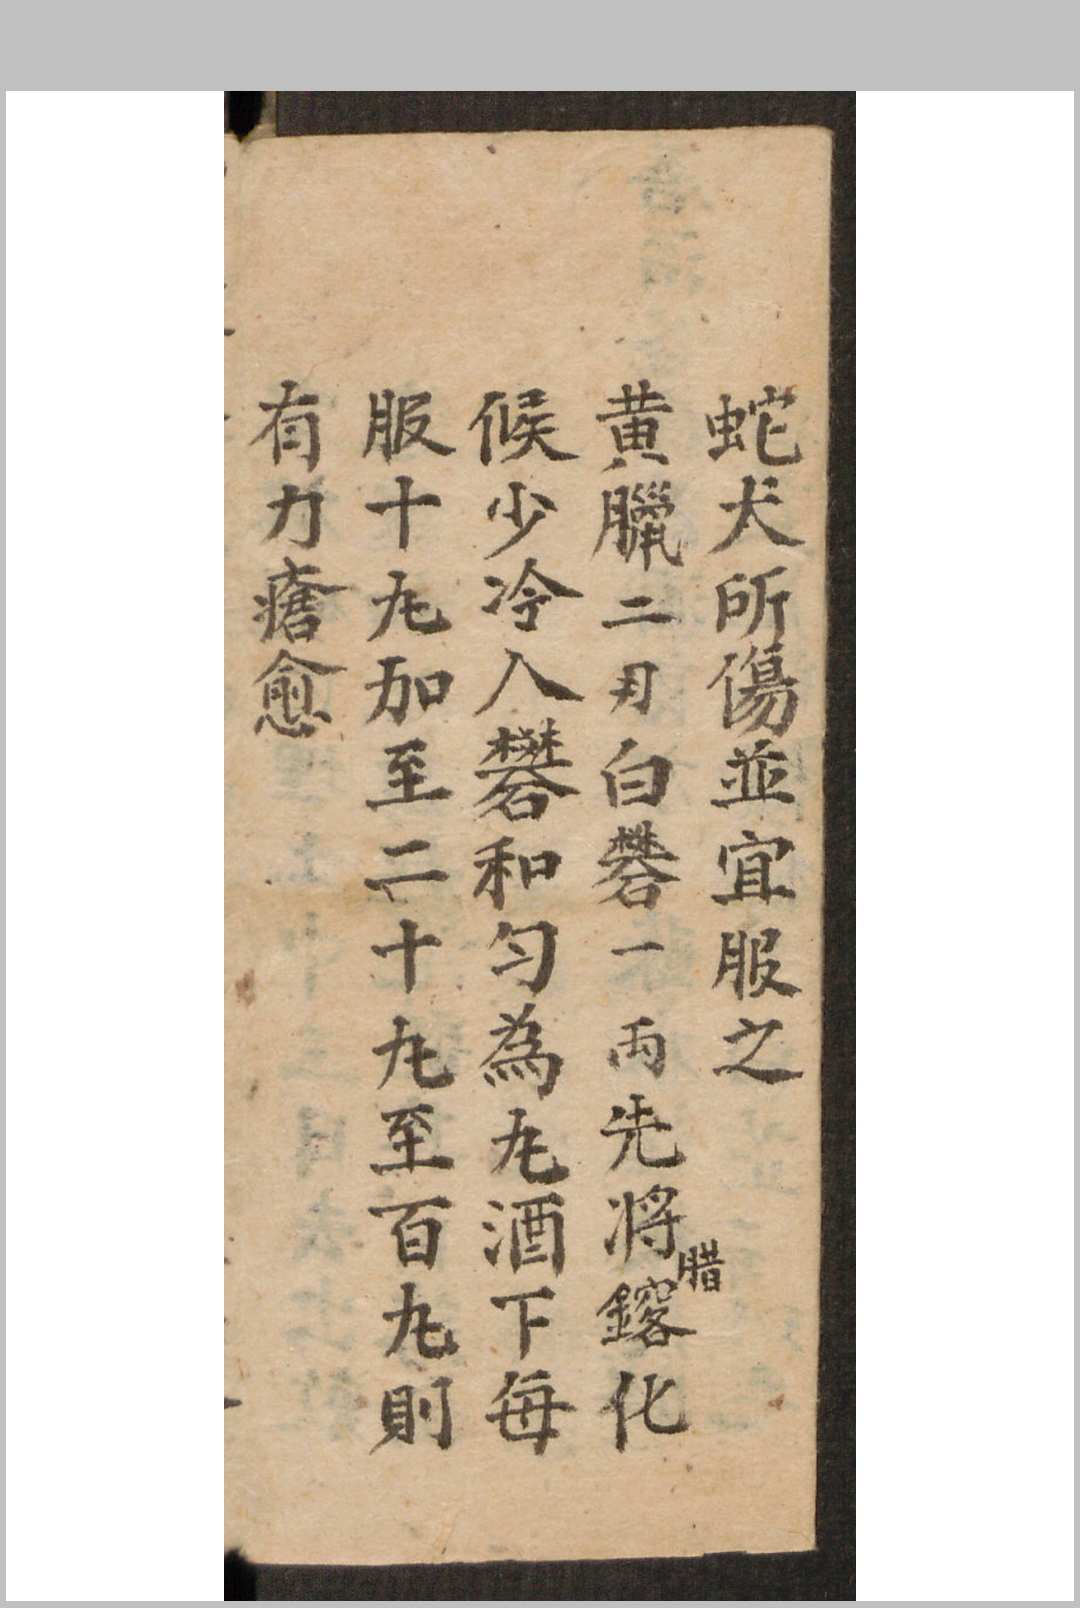 蛇犬所傷並宜服之
黄臘二刄白礬一両先將腊鎔化
候少冷入礬和匀為丸酒下每
服十丸加至二十丸至百丸則
有力瘡愈